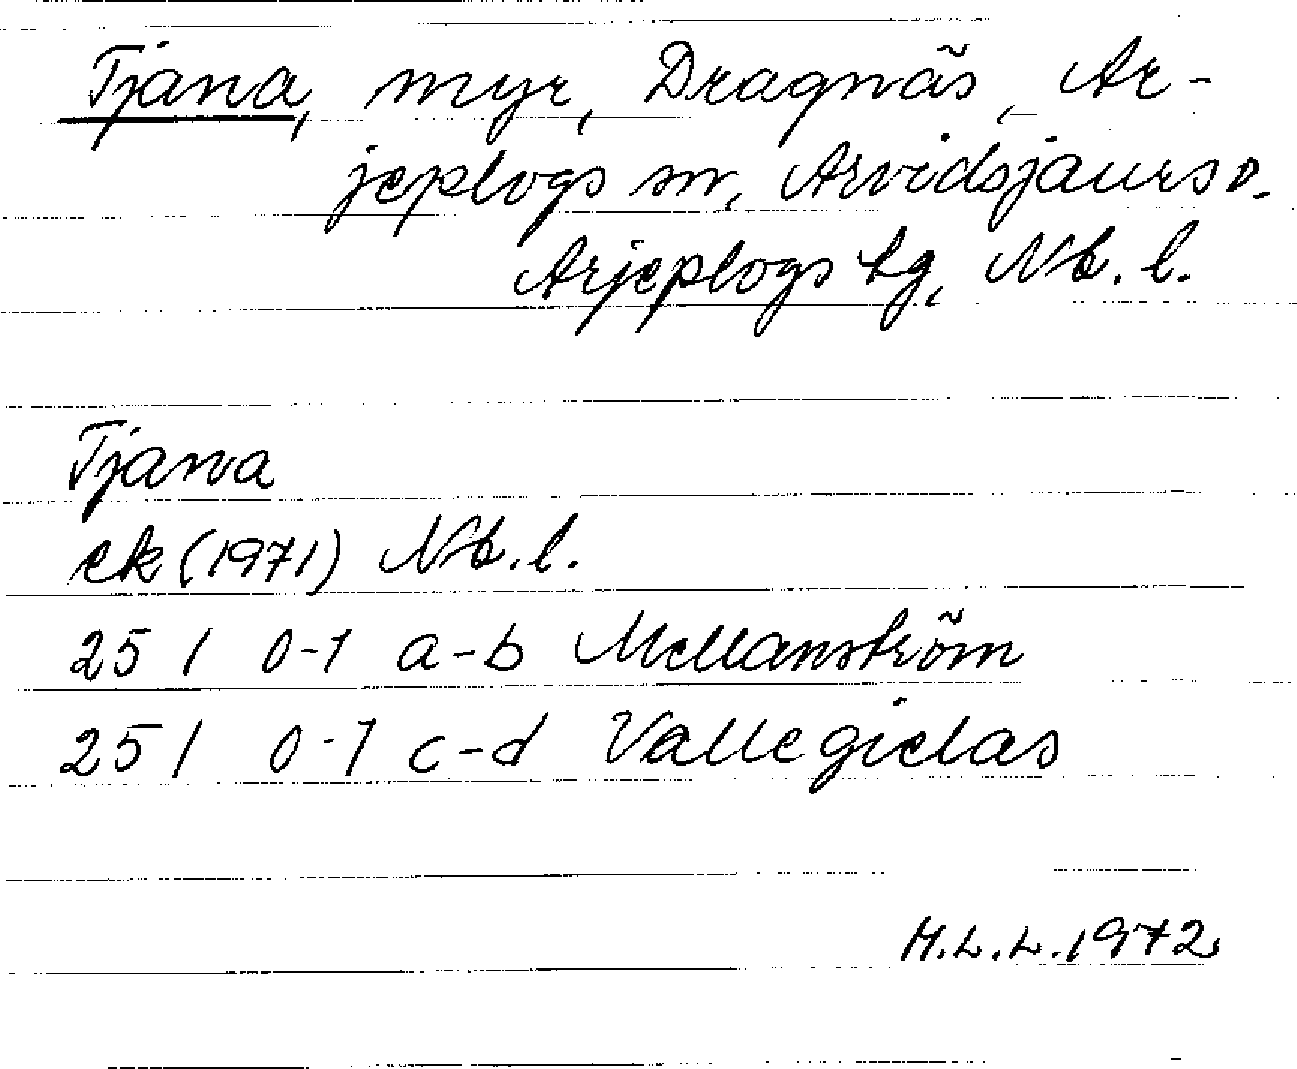 Tjana, myr, Dragnäs, Ar-
jeplogs sn, Arvidsjaurs o.
Arjeplogs tg, Nb. l.
Tjana
ek (1971) Nb. l.
25 I 0-1 a-b Mellanström
25 I 0-1 c-d Vallegielas
H.L.L. 1972